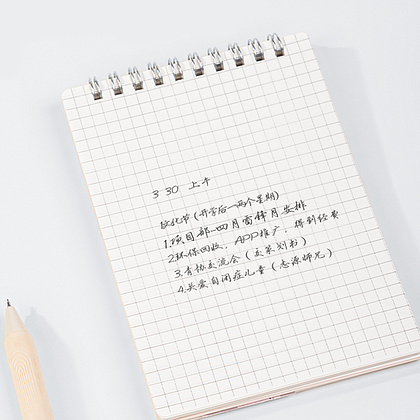 3 30 上午
文化节(开学后一两个星期)
1.项目部-四月雷锋月安排
2.环保回收,APP推广,得到经费
3.青协交流会(交策划书)
4.关爱自闭症儿童(志源师兄)